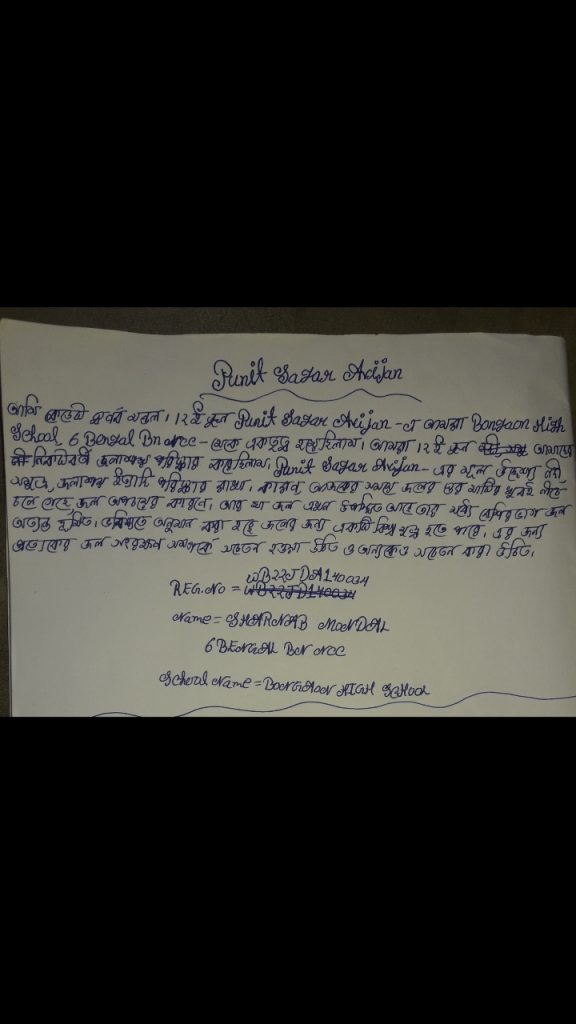 Punit Sagar Avijan
আমি ক্যাডেট স্বর্ণব মন্ডল। 12 ই জুন Punit Sagar Avijan - এ আমরা Bongaon High
School 6 Bengal Bn NCC - থেকে একত্র হয়েছিলাম। আমরা 12 ই জুন আমাদের
নিকটবর্তী জলাশয় পরিষ্কার করেছিলাম। Punit Sagar Avijan - এর মূল উদ্দেশ্য নদী
সমুদ্র, জলাশয় ইত্যাদি পরিষ্কার রাখা। কারন, আজকের সময়ে জলের স্তর মাটির খুবই নীচে
চলে গেছে জল অপচয়ের কারনে। আর যা জল এখন উপস্থিত আছে তার মধ্যে বেশিরভাগ জল
অত্যন্ত দূষিত। ভবিষ্যতে অনুমান করা হচ্ছে জলের জন্য একটি বিশ্ব যুদ্ধ হতে পারে। এর জন্য
প্রত্যেকের জল সংরক্ষন সম্পর্কে সচেতন হওয়া উচিত ও অন্যকেও সচেতন করা উচিত।
WB22JDA140034
REG.No = WB22JD140034
Name = SHARNAB MONDAL
6 BENGAL BN NCC
School Name = BONGAON HIGH SCHOOL